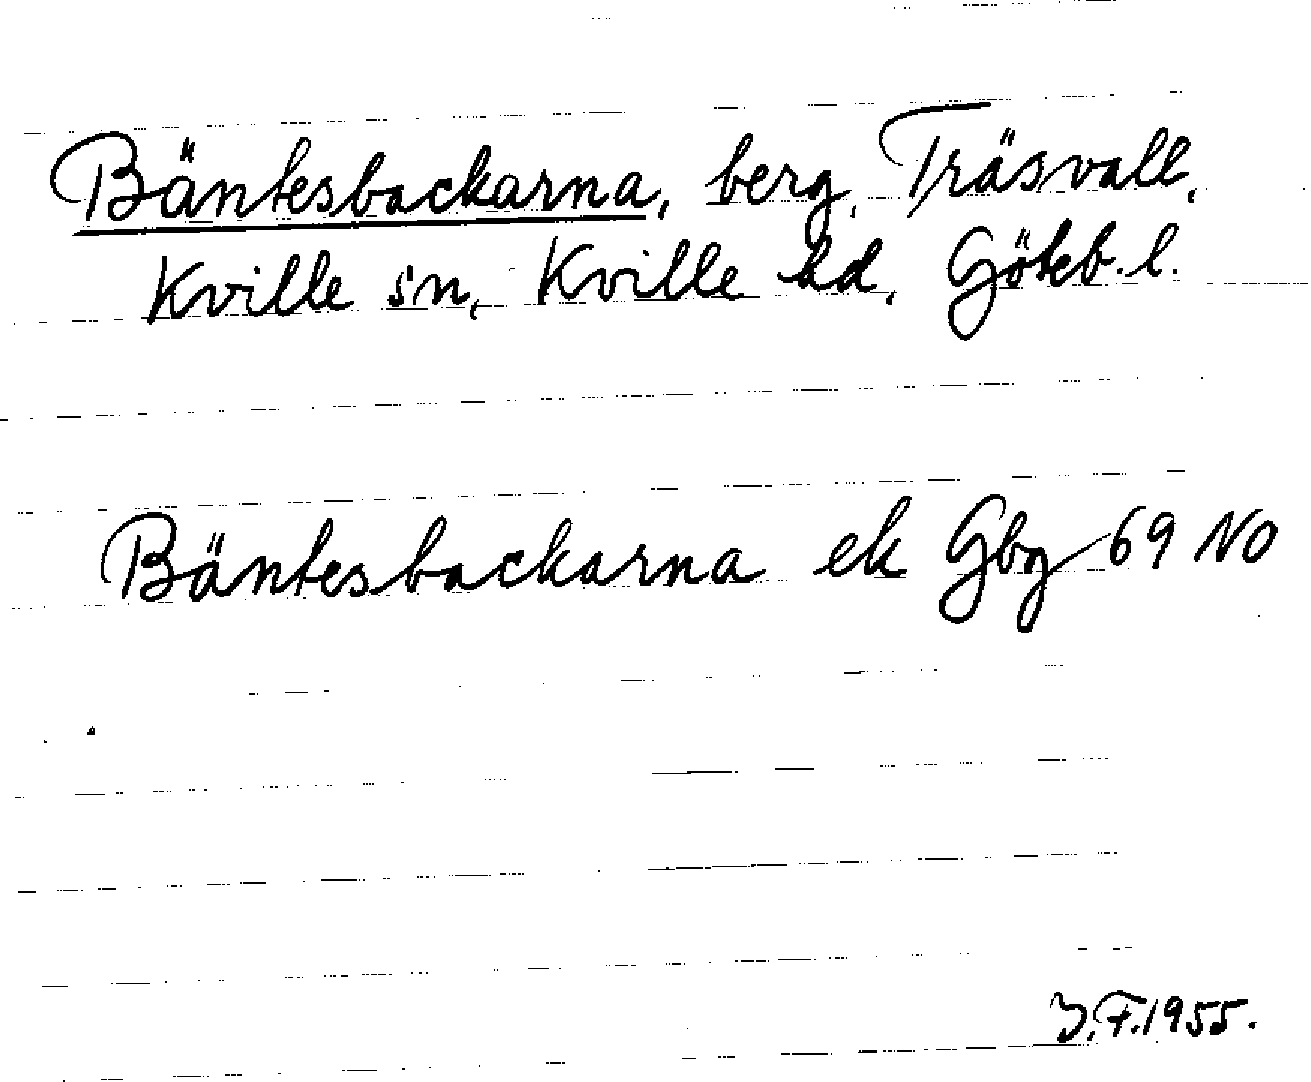 Bäntesbackarna, berg, Träsvall,
Kville sn, Kville hd, Göteb. l.
Bäntesbackarna ek Gbg 69 NO
J.F. 1955.